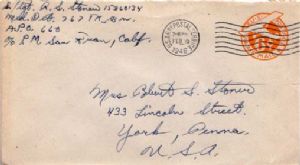 R. S. Stoner 15324134
Med. Det. 767 T.K. Bn.
A.P.O. 660
c/o P.M. San Fran, Calif.
POSTAL SERVICE
FEB
1946
Mrs Robert S. Stoner
433 Lincoln Street.
York, Penna.
U.S.A.